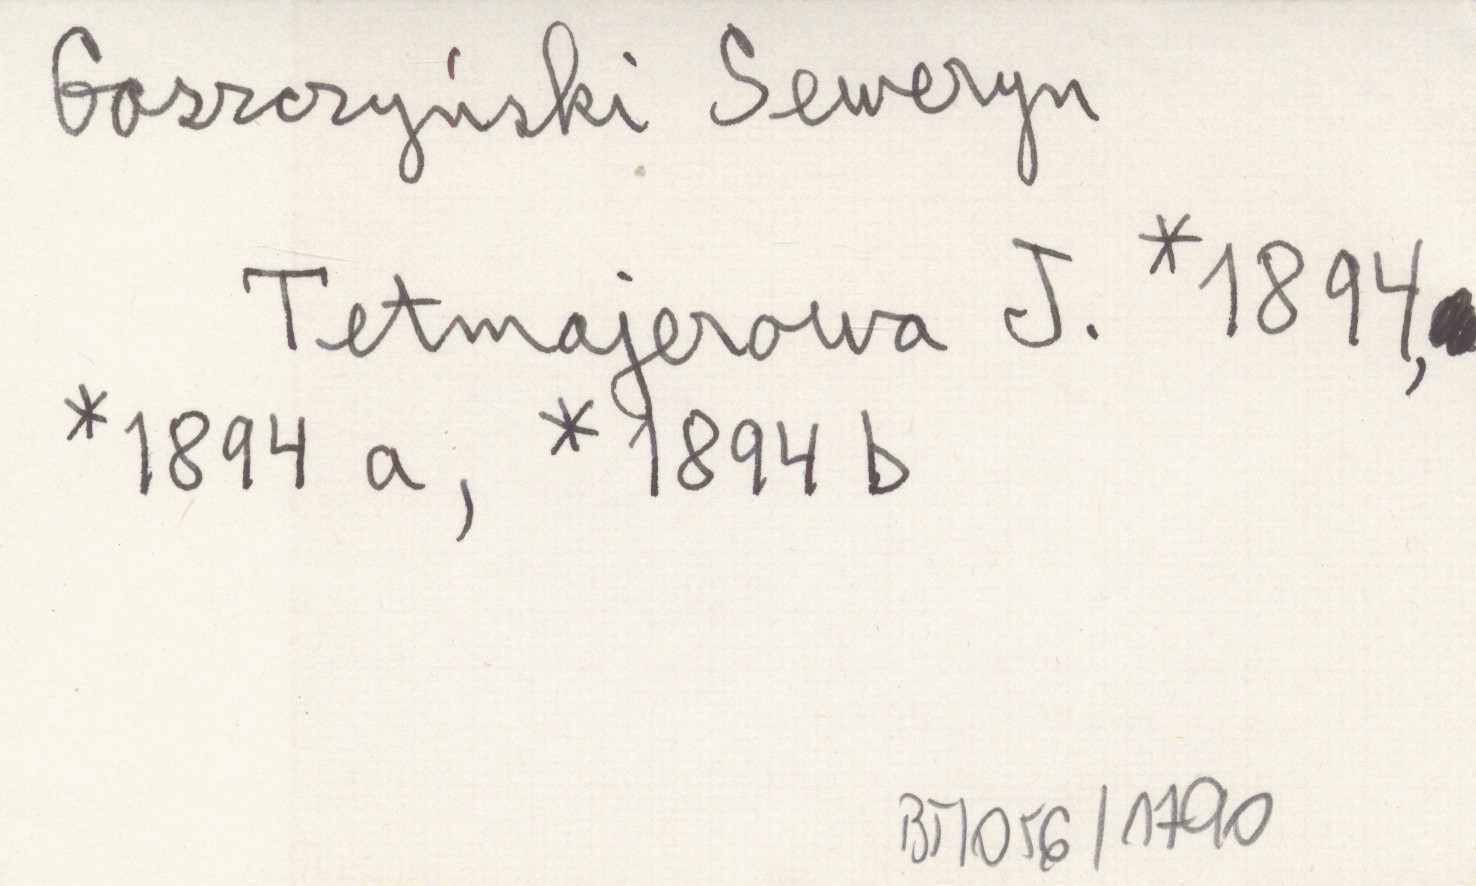 Goszczyński Seweryn
Tetmajerowa J. *1894,
*1894 a, *1894 b
BT/056/1790